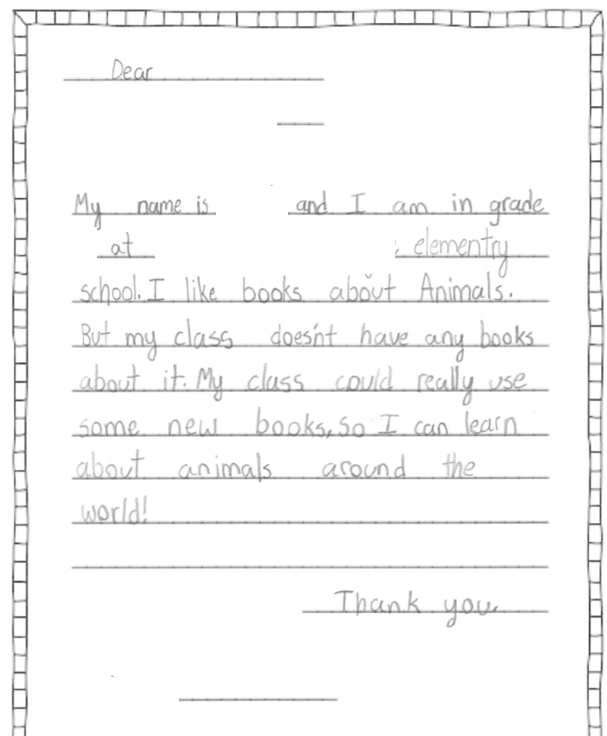 Dear
My name is and I am in grade
at elementry
school. I like books about Animals.
But my class does'nt have any books
about it. My class could really use
some new books, so I can learn
about animals around the
world!
Thank you.